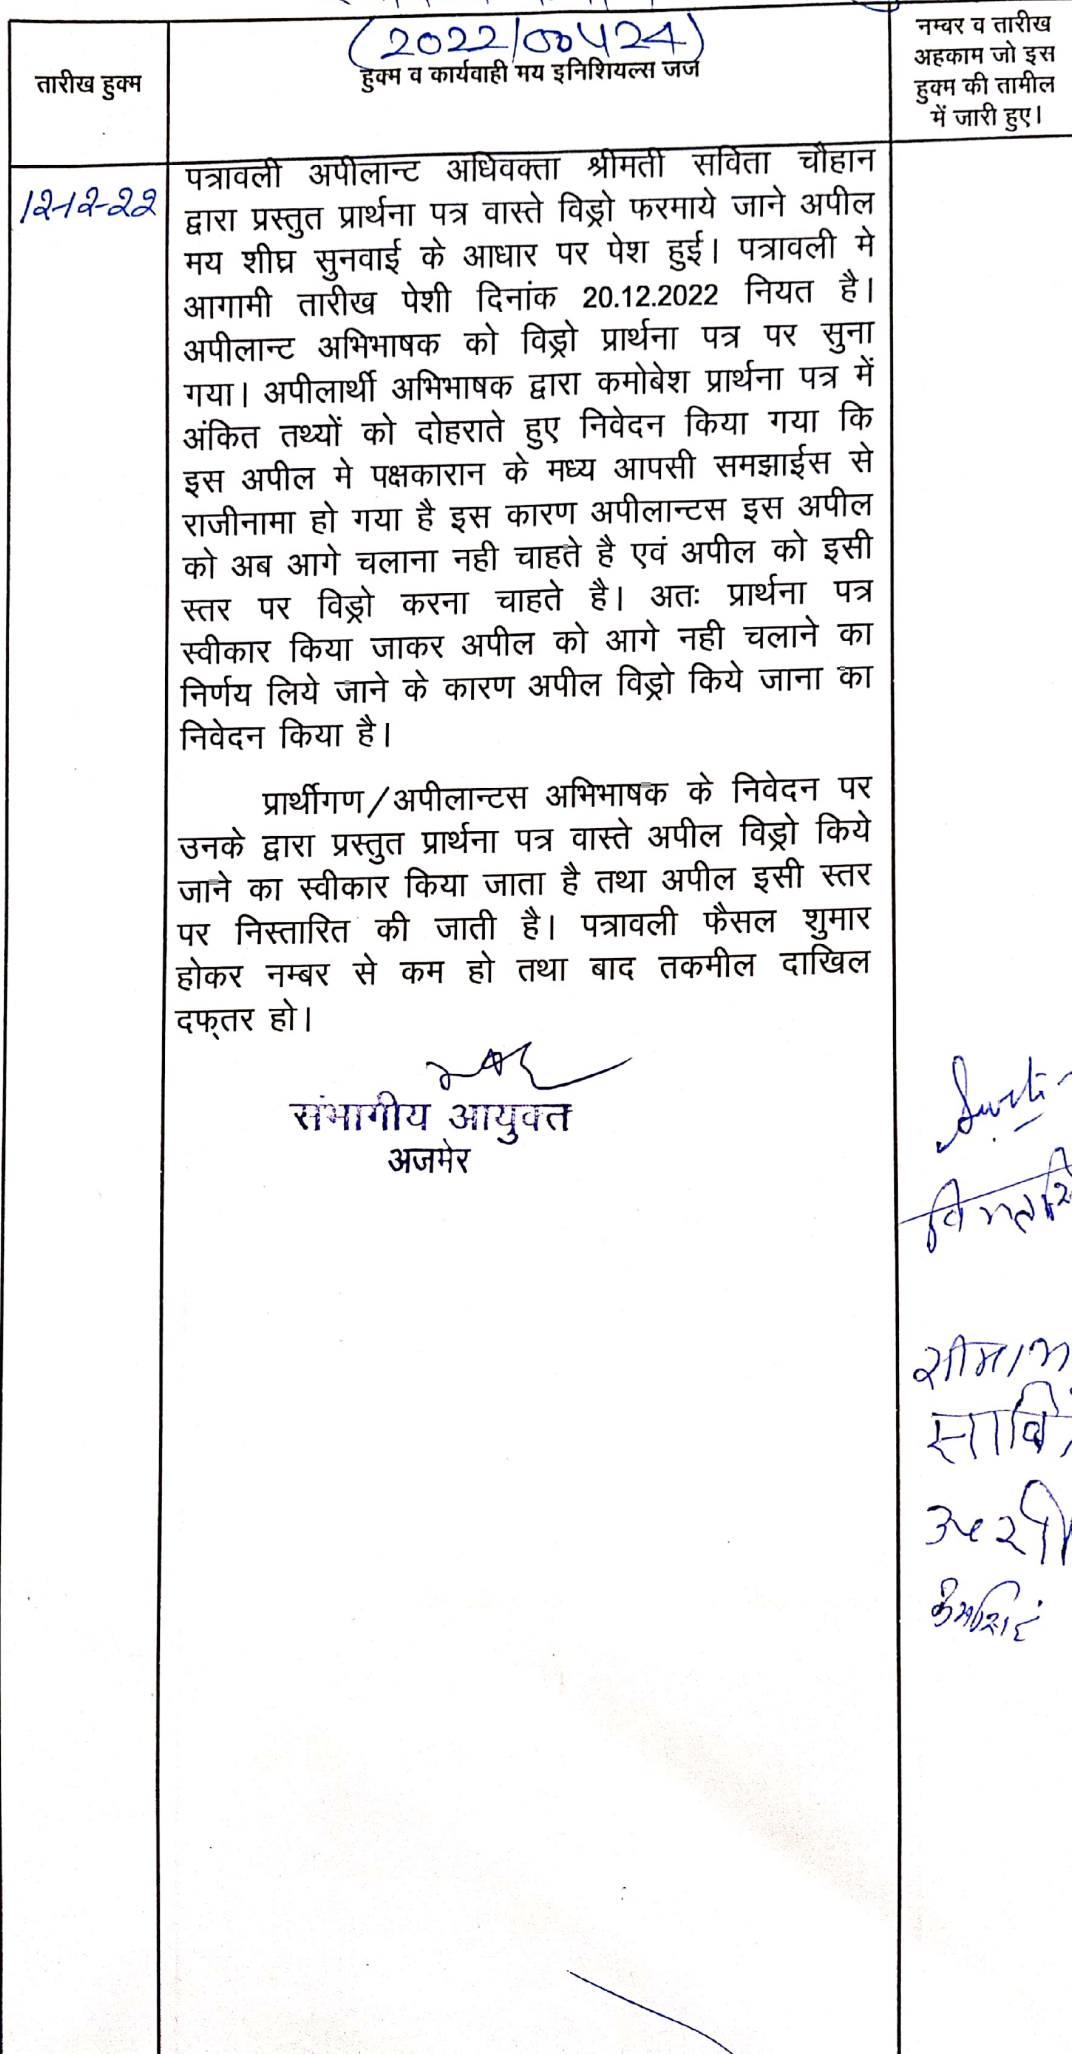 (2022/00424)
तारीख हुक्म
हुक्म व कार्यवाही मय इनिशियल्स जज
नम्बर व तारीख
अहकाम जो इस
हुक्म की तामील
में जारी हुए।
12-12-22
पत्रावली अपीलान्ट अधिवक्ता श्रीमती सविता चौहान
द्वारा प्रस्तुत प्रार्थना पत्र वास्ते विड्रो फरमाये जाने अपील
मय शीघ्र सुनवाई के आधार पर पेश हुई। पत्रावली मे
आगामी तारीख पेशी दिनांक 20.12.2022 नियत है।
अपीलान्ट अभिभाषक को विड्रो प्रार्थना पत्र पर सुना
गया। अपीलार्थी अभिभाषक द्वारा कमोबेश प्रार्थना पत्र में
अंकित तथ्यों को दोहराते हुए निवेदन किया गया कि
इस अपील मे पक्षकारान के मध्य आपसी समझाईस से
राजीनामा हो गया है इस कारण अपीलान्टस इस अपील
को अब आगे चलाना नही चाहते है एवं अपील को इसी
स्तर पर विड्रो करना चाहते है। अतः प्रार्थना पत्र
स्वीकार किया जाकर अपील को आगे नही चलाने का
निर्णय लिये जाने के कारण अपील विड्रो किये जाना का
निवेदन किया है।
प्रार्थीगण/अपीलान्टस अभिभाषक के निवेदन पर
उनके द्वारा प्रस्तुत प्रार्थना पत्र वास्ते अपील विड्रो किये
जाने का स्वीकार किया जाता है तथा अपील इसी स्तर
पर निस्तारित की जाती है। पत्रावली फैसल शुमार
होकर नम्बर से कम हो तथा बाद तकमील दाखिल
दफ्तर हो।
संभागीय आयुक्त
अजमेर